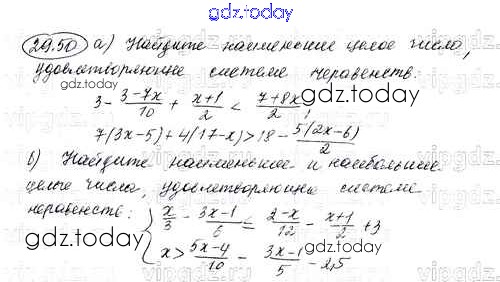 gdz.today
29.50 а) Найдите наименьшее целое число,
удовлетворяющие системе неравенств:
3 - \frac{3-7x}{10} + \frac{x+1}{2} < \frac{7+8x}{2},
gdz.today
7(3x-5)+4(17-x)>18-\frac{5(2x-6)}{2}
б) Найдите наименьшее и наибольшее
целые числа, удовлетворяющие системе
неравенств: { \frac{x}{3} - \frac{3x-1}{6} ≤ \frac{2-x}{12} - \frac{x+1}{2} + 3
gdz.today
x > \frac{5x-4}{10} - \frac{3x-1}{5} - 2,5
gdz.today